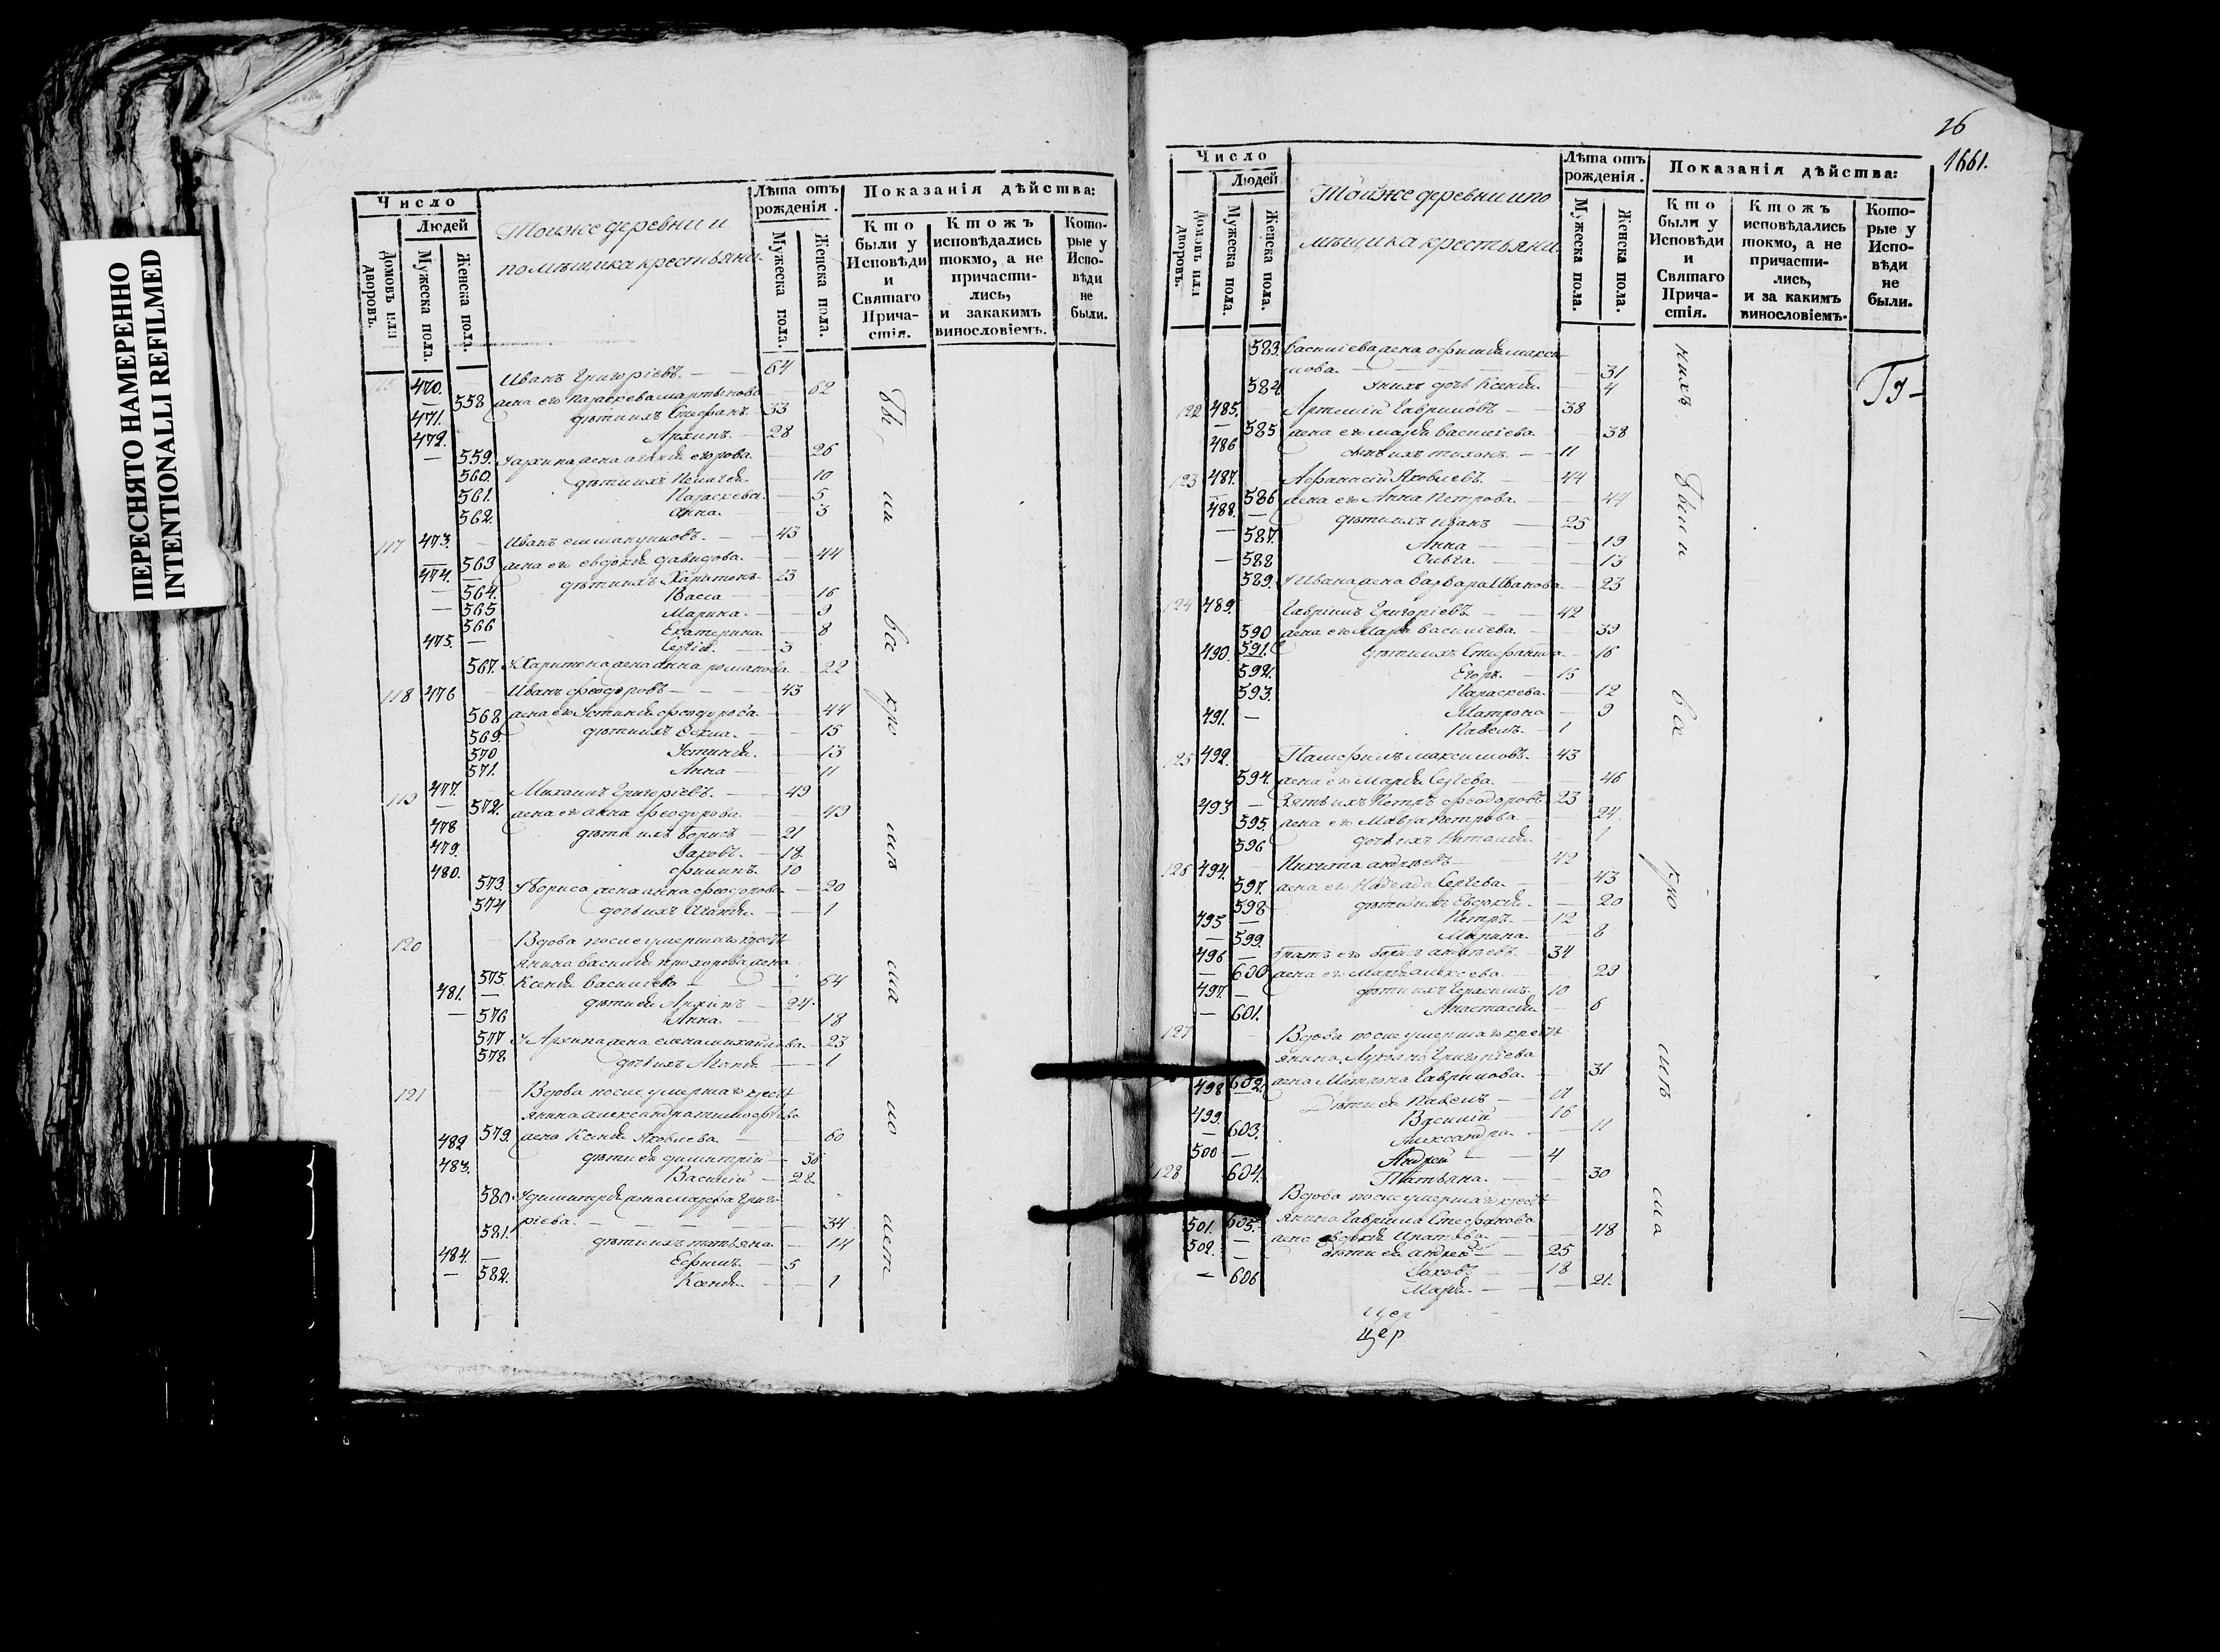 ПЕРЕСНЯТО НАМЕРЕННО
INTENTIONALLI REFILMED
Число
Людей
Домовъ или дворовъ.
Мужеска пола.
Женска пола.
Тойже деревни и
помѣщика крестьяни
Лѣта отъ рожденія.
Мужеска пола.
Женска пола.
Показанія дѣйства:
Кто были у Исповѣди и Святаго Прича-стія.
Ктожъ исповѣдались токмо, а не причасти-лись, и закакимъ винословіемъ.
Кото-рые у Испо-вѣди не были.
470. Иванъ Григоріевъ. 64
558 жена его Параскева мартынова 62
471. дѣти ихъ Стефанъ 33
472. Архипъ 28
559. Уархипа жена егорова 26
560. дѣти ихъ Пелагея 10
561. Параскева 5
562. Анна 3
117 473. Иванъ 43
563 жена его евдокія давидова 44
474. дѣти ихъ Харитонъ 23
564. Васса 16
565 Марина 9
566 Екатерина 8
475. Сергій 3
567. УХаритона жена Анна романова 22
118 476 Иванъ феодоровъ 43
568 жена его Устинія феодорова 44
569. дѣти ихъ 15
570 Устинія 13
571. Анна 11
119 477. Михаилъ Григоріевъ 49
572. жена его анна феодорова 49
478 дѣти ихъ Борисъ 21
479. Іаковъ 18
480. филипъ 10
573. УБориса жена анна феодорова 20
574 дочь ихъ Агафія 1
120 Вдова после умершаго кресть
янина василія прохорова жена
575 Ксенія василіева 64
481. дѣти ея Архипъ 24
576 Анна 18
577 УАрхипа жена елена михайлова 23
578 дочь ихъ Агафія 1
121 Вдова после умершаго кресть
янина александра тимофеева
579. жена Ксенія Яковлева 60
482 дѣти ея димитрій 36
483. Василій 28
580 Удимитрія жена марфа Григо
ріева. 34
581. дѣти ихъ татьяна 14
484. Ефимъ 5
582. Ксенія 1
Бы
ли
все
кро
мѣ
ма
ло
лет
26
1661.
Число
Людей
Домовъ или дворовъ.
Мужеска пола.
Женска пола.
Тойже деревни и по
мѣщика крестьяни
Лѣта отъ рожденія.
Мужеска пола.
Женска пола.
Показанія дѣйства:
Кто были у Исповѣди и Святаго Прича-стія.
Ктожъ исповѣдались токмо, а не причасти-лись, и за какимъ винословіемъ.
Кото-рые у Испо-вѣди не были.
583. василіева жена офимія макси
мова. 31
584 Уних дочь Ксенія 4
122 485. Артемій Гавриловъ 38
585 жена его марія василіева 38
486 сынъ ихъ тихонъ 11
123 487. Афанасій Яковлевъ 44
586 жена его Анна Петрова 44
488. дѣти ихъ иванъ 25
587. Анна 19
588 Ольга 13
589. УИвана жена варвара Иванова 23
124 489. Гавріилъ Григоріевъ 42
590 жена его Марія василіева 39
490. 591. дѣти ихъ Стефанида 16
592. Егоръ 15
593. Параскева 12
491. Матрона 9
Павелъ 1
125 492. Памфилъ максимовъ 43
594. жена его Марія Сергеева 46
493 Зять ихъ Петръ феодоровъ 23
595. жена его Мавра петрова 24
596 дочь ихъ Наталія 1
126 494. Никита андреевъ 42
597. жена его Надежда Сергеева 43
598 дѣти ихъ Евдокія 20
495 Петръ 12
599. Марина 8
496 братъ его борисъ андреевъ 34
600 жена его Марія алексеева 29
497. дѣти ихъ Герасимъ 10
601. Анастасія 6
127 Вдова после умершаго кресть
янина Лукіана Григоріева
602. жена Матрона Гаврилова 31
498 Дѣти ея Павелъ
499. Василій 16
603. Александра 11
500 Андрей 4
128 604. Татьяна 30
Вдова после умершаго кресть
янина Гавріила Стефанова
605. жена евдокія 48
501. дѣти ея андрей 25
502. Іаковъ 18
606 Марія 21.
Цер
цер
нихъ
были
все
кро
мѣ
ма